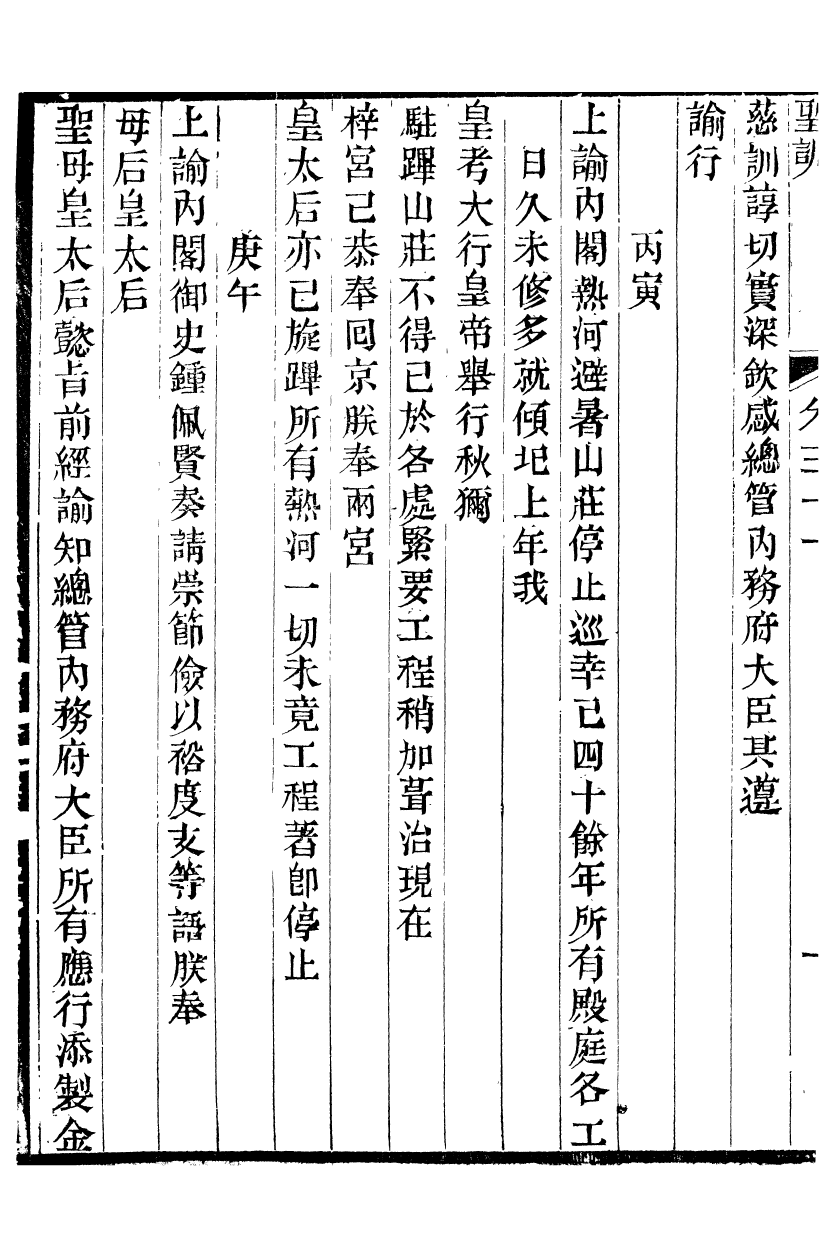 聖訓
慈訓諄切實深欽感總管內務府大臣其遵
諭行
丙寅
上諭內閣熱河避暑山莊停止巡幸已四十餘年所有殿庭各工
日久未修多就傾圮上年我
皇考大行皇帝舉行秋獮
駐蹕山莊不得已於各處緊要工程稍加葺治現在
梓宮已恭奉回京朕奉兩宮
皇太后亦已旋蹕所有熱河一切未竟工程著卽停止
庚午
上諭內閣御史鍾佩賢奏請崇節儉以裕度支等語朕奉
母后皇太后
聖母皇太后懿旨前經諭知總管內務府大臣所有應行添製金